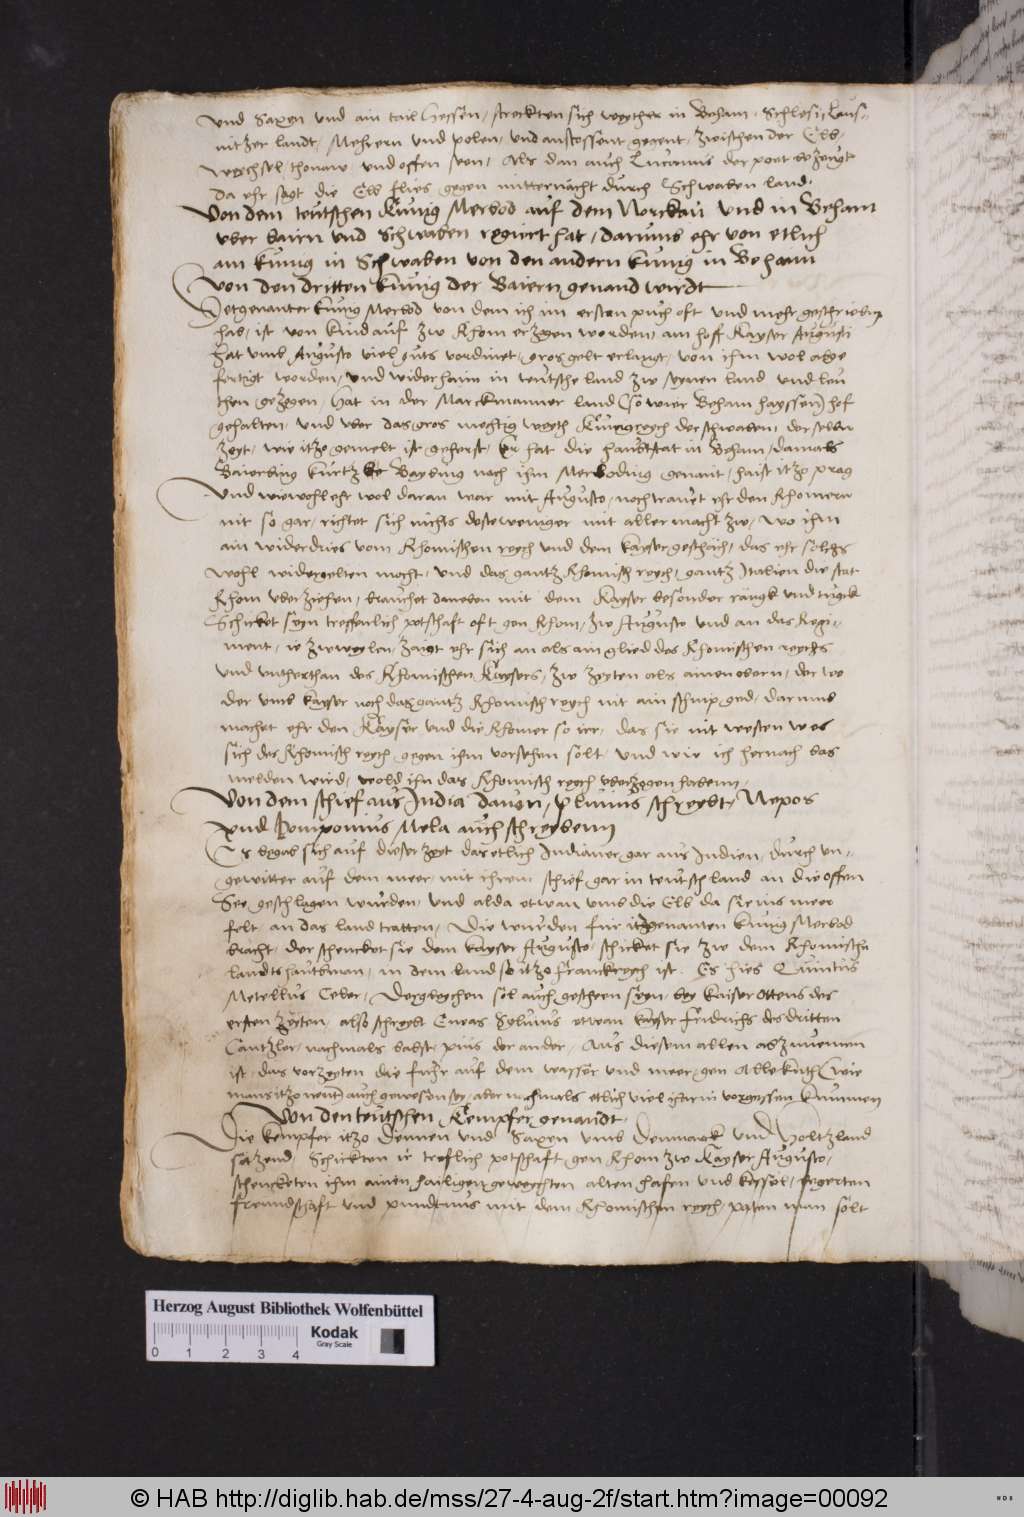 und Saxen und ain tail Hessen, streckten sich weyther in Beham, Schlesi, Laus-
nitzer landt, Mehrern und polen, und anstossent gegent, zwischen der Elb,
weychsel, thonaw, und offen seen, Als dan auch Lucanus der poet bezeugt
da ehr sagt die Elb flies gegen mitternacht durch Schwaben land.
Von dem teutschen Kunig Merbod auf dem Norckau und in Beham
uber bairn und Schwaben regiert hat, darumb ehr von etlich
ain kunig in Schwaben von den andern kunig in Beham
von den dritten kunig der Baiern genand wirdt
Jetgenanter kunig Merbod von dem ich im ersten puch oft und mehr geschrieben
hab, ist von kind auf zw Rhom erzogen worden, am hoff Kayser Augusti
hat umb Augusto viel guts verdinet, gros gelt erlangt, von ihm wol abge
fertigt worden, und wider haim in teutsche land zw seynen land und leu
then gezogen, Hat in der Marckmanner land (so wier Beham hayssen) hof
gehalten, und uber das gros mechtig weyth Kunigreych der schwaben, der selben
zeyt, wie itzo gemelt ist geherst, Er hat die haubtstat in Beham, damals
Baierbing kurtz Baybing nach ihm Merboding genant, haist itzo prag
Und wiewohl ehr wol daran war mit Augusto, noch trauet ehr den Rhomern
nit so gar, richtet sich nichts desteweniger mit aller macht zw, wo ihm
ain widerdries vom Rhomischen reych und dem kayser geschäch, das ehr solchs
wohl widergelten mocht, und das gantz Rhomisch reych, gantz Italien die stat
Rhom uberziehen, brauchet daneben mit dem Kayser besonder rangk und tugck
Schicket seyn treffenlich potschaft oft gen Rhom, zw Augusto und an das Regi-
ment, ie zwweylen, zaigt ehr sich an als ain glied des Rhomischen reychs
und unterthan des Rhomischen Kaysers, zw zeyten als ainen obern, der we
der umb kayser noch das gantz Rhomisch reych nit ain schnip geb, darumb
machet ehr den Kayser und die Rhomer so irr, das sie nit westen wes
sich des Rhomisch reych gegen ihm versehen solt, und wie ich hernach bas
melden wird, wold ihn das Rhomisch reych uberzogen habenn,
Von dem schief aus India davon, plinius schreybt, Nepos
und Pomponius Mela auch schreybenn
Es begab sich auf dieser zeyt das etlich Indianer gar aus Indien, durch un-
gewitter auf dem meer, mit ihrem schief gar in teutschland an die offen
See geschlagen wurden, und alda etwan umb die Elb da sie ins meer
felt an das land tratten, Die wurden fur itzgenanten kunig Merbod
bracht, der schencket sie dem kayser Augusto, schicket sie zw dem Rhomischn
landtshaubman, in dem land so itzo franckreych ist. Es hies Quintus
Metellus Celer, Dergleychen sol auch gescheen seyn, bey kaiser Ottens des
ersten Zeyten, also schreybt Eneas Sylvius etwan kayser fridrichs des dritten
Cantzler, nachmals babst, pius der ander, Aus diesem allen abzunemen
ist, das vorzeyten die fuhr auf dem wasser und meer, gen Allekuth (wie
mans itzo nent) auch gewesen sey, aber nachmals etlich viel iar in vergessen kummen
Von den teutschen Kempfer genandt.
Die kempfer itzo Dennen und Saxen umb Denmarck und Holtzland
sitzend, Schickten ir treflich potschaft gen Rhom zw Kayser Augusto,
schenckten ihm ainen hailigen geweychten alten hafen und kessel, begerten
freundschaft und pundtnus mit dem Rhomischen reych, paten man solt
Herzog August Bibliothek Wolfenbüttel
Kodak
Gray Scale
0 1 2 3 4
© HAB http://diglib.hab.de/mss/27-4-aug-2f/start.htm?image=00092